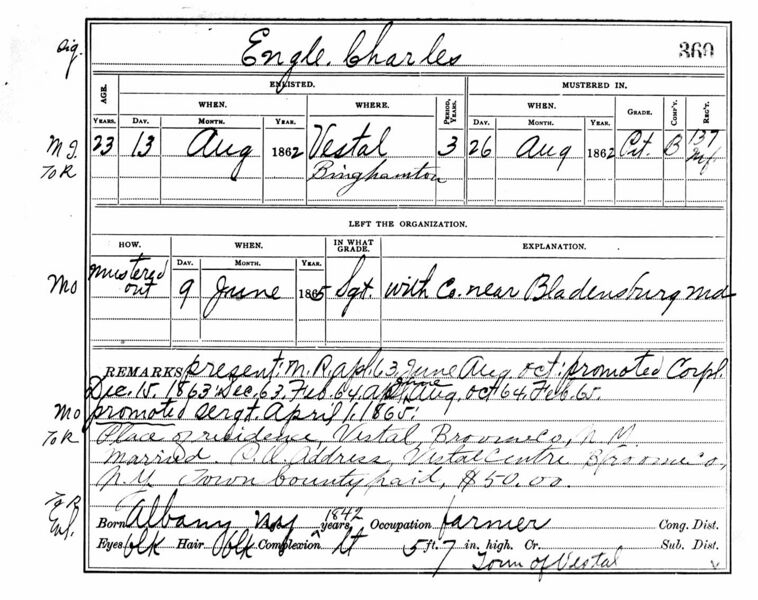 Sig. Engle, Charles 360
AGE. ENLISTED. MUSTERED IN.
WHEN. WHERE. PERIOD, YEARS. WHEN. GRADE. COMP'Y. REG'T.
YEARS. DAY. MONTH. YEAR. DAY. MONTH. YEAR.
M.I. 23 13 Aug 1862 Vestal 3 26 Aug 1862 Pvt. B 137
To R Binghamton Inf
LEFT THE ORGANIZATION.
HOW. WHEN. IN WHAT GRADE. EXPLANATION.
DAY. MONTH. YEAR.
Mo mustered out 9 June 1865 Sgt. with Co. near Bladensburg Md
REMARKS present: M.R. Apl. 63, June Aug. Oct: promoted Corpl.
Dec. 15. 1863: Dec. 63. Feb. 64, Apl, June Aug. Oct 64, Feb. 65.
Mo promoted sergt. April 1. 1865.
To R Place of residence, Vestal, Broome Co, N.Y.
Married. P.O. Address, Vestal Centre Broome Co,
N.Y. Town bounty paid, $50.00.
To R Enl. Born Albany N.Y. 1842 years, Occupation farmer Cong. Dist.
Eyes blk Hair blk Complexion lt 5 ft. 7 in. high. Cr. Sub. Dist.
Town of Vestal